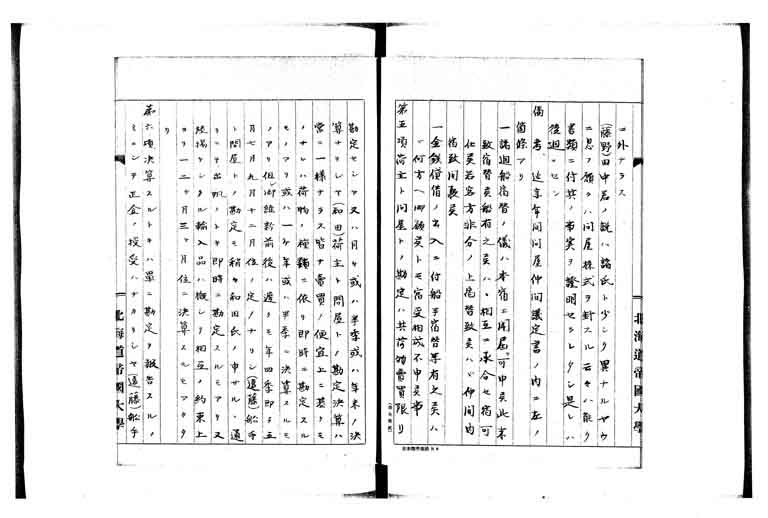 ニ外ナラス
(藤野田中君ノ説ハ諸氏ト少シク異ナルヤウ
ニ思フ願クハ問屋株式ヲ封スル云々ハ能ク
書類ニ付其ノ事実ヲ證明セラレタシ是レハ
後廻シセン
備考、延享年間問屋仲間議定書ノ内ニ左ノ
箇條アリ
一諸廻船宿替ノ儀ハ本宿ニ聞届ケ可申矣此末
致宿替矣船有之矣ハヽ相互ニ承合セ宿可
矣若客方非合ノ上宿替致矣ハヽ仲間内
宿致間敷矣
一金銭借ノ出入ニ付船手宿替等有之矣ハ
ヽ何方ヘ御頼矣トモ宿受相談不申矣事
第五項荷主ト問屋トノ勘定ハ其荷物賣買限リ
北海道帝國大學
勘定セシヤ又ハ月々或ハ半季或ハ年末ノ決
算ナリシヤ(和田)荷主ト問屋トノ勘定決算ハ
常ニ一様ナラス皆ナ賣買ノ便宜上ニ基クモ
ノナレハ荷物ノ種類ニ依リ即時ニ勘定スル
モノアリ或ハ一ケ年或ハ半季ニ決算スルモ
ノアリ但シ御維新前後ハ遅クモ年四季即チ五
月七月九月十二月位ノ定メナリシ(遠藤)船手
ト問屋トノ勘定モ稍々和田氏ノ申サルヽ通
リニテ出帆ノトキ即時ニ勘定スルモアリ又
段揚ケシタル輸入品ハ概シテ相互ノ約束上
ヨリ一二ケ月三ケ月位ニ決算スルモアリタ
リ
第六項決算スルトキハ單ニ勘定ヲ報告スルノ
ミニシテ正金ノ授受ハナカリシヤ(遠藤)船手
北海道帝國大學